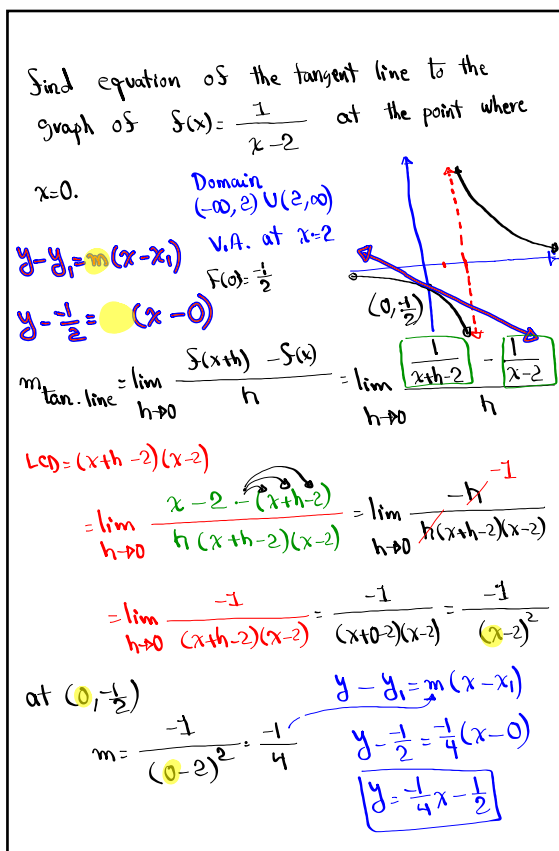 find equation of the tangent line to the
graph of f(x) = 1/(x-2) at the point where
x=0.
Domain
(-∞, 2) ∪ (2, ∞)
V.A. at x=2
F(0) = -1/2
y-y₁ = m(x-x₁)
y - -1/2 = (x-0)
(0, -1/2)
m tan. line = lim h→0 (f(x+h) - f(x))/h = lim h→0 (1/(x+h-2) - 1/(x-2))/h
LCD = (x+h-2)(x-2)
= lim h→0 (x-2-(x+h-2))/(h(x+h-2)(x-2)) = lim h→0 -h/(h(x+h-2)(x-2)) -1
= lim h→0 -1/((x+h-2)(x-2)) = -1/((x+0-2)(x-2)) = -1/(x-2)²
at (0, -1/2)
m = -1/(0-2)² = -1/4
y - y₁ = m(x-x₁)
y - -1/2 = -1/4(x-0)
y = -1/4x - 1/2